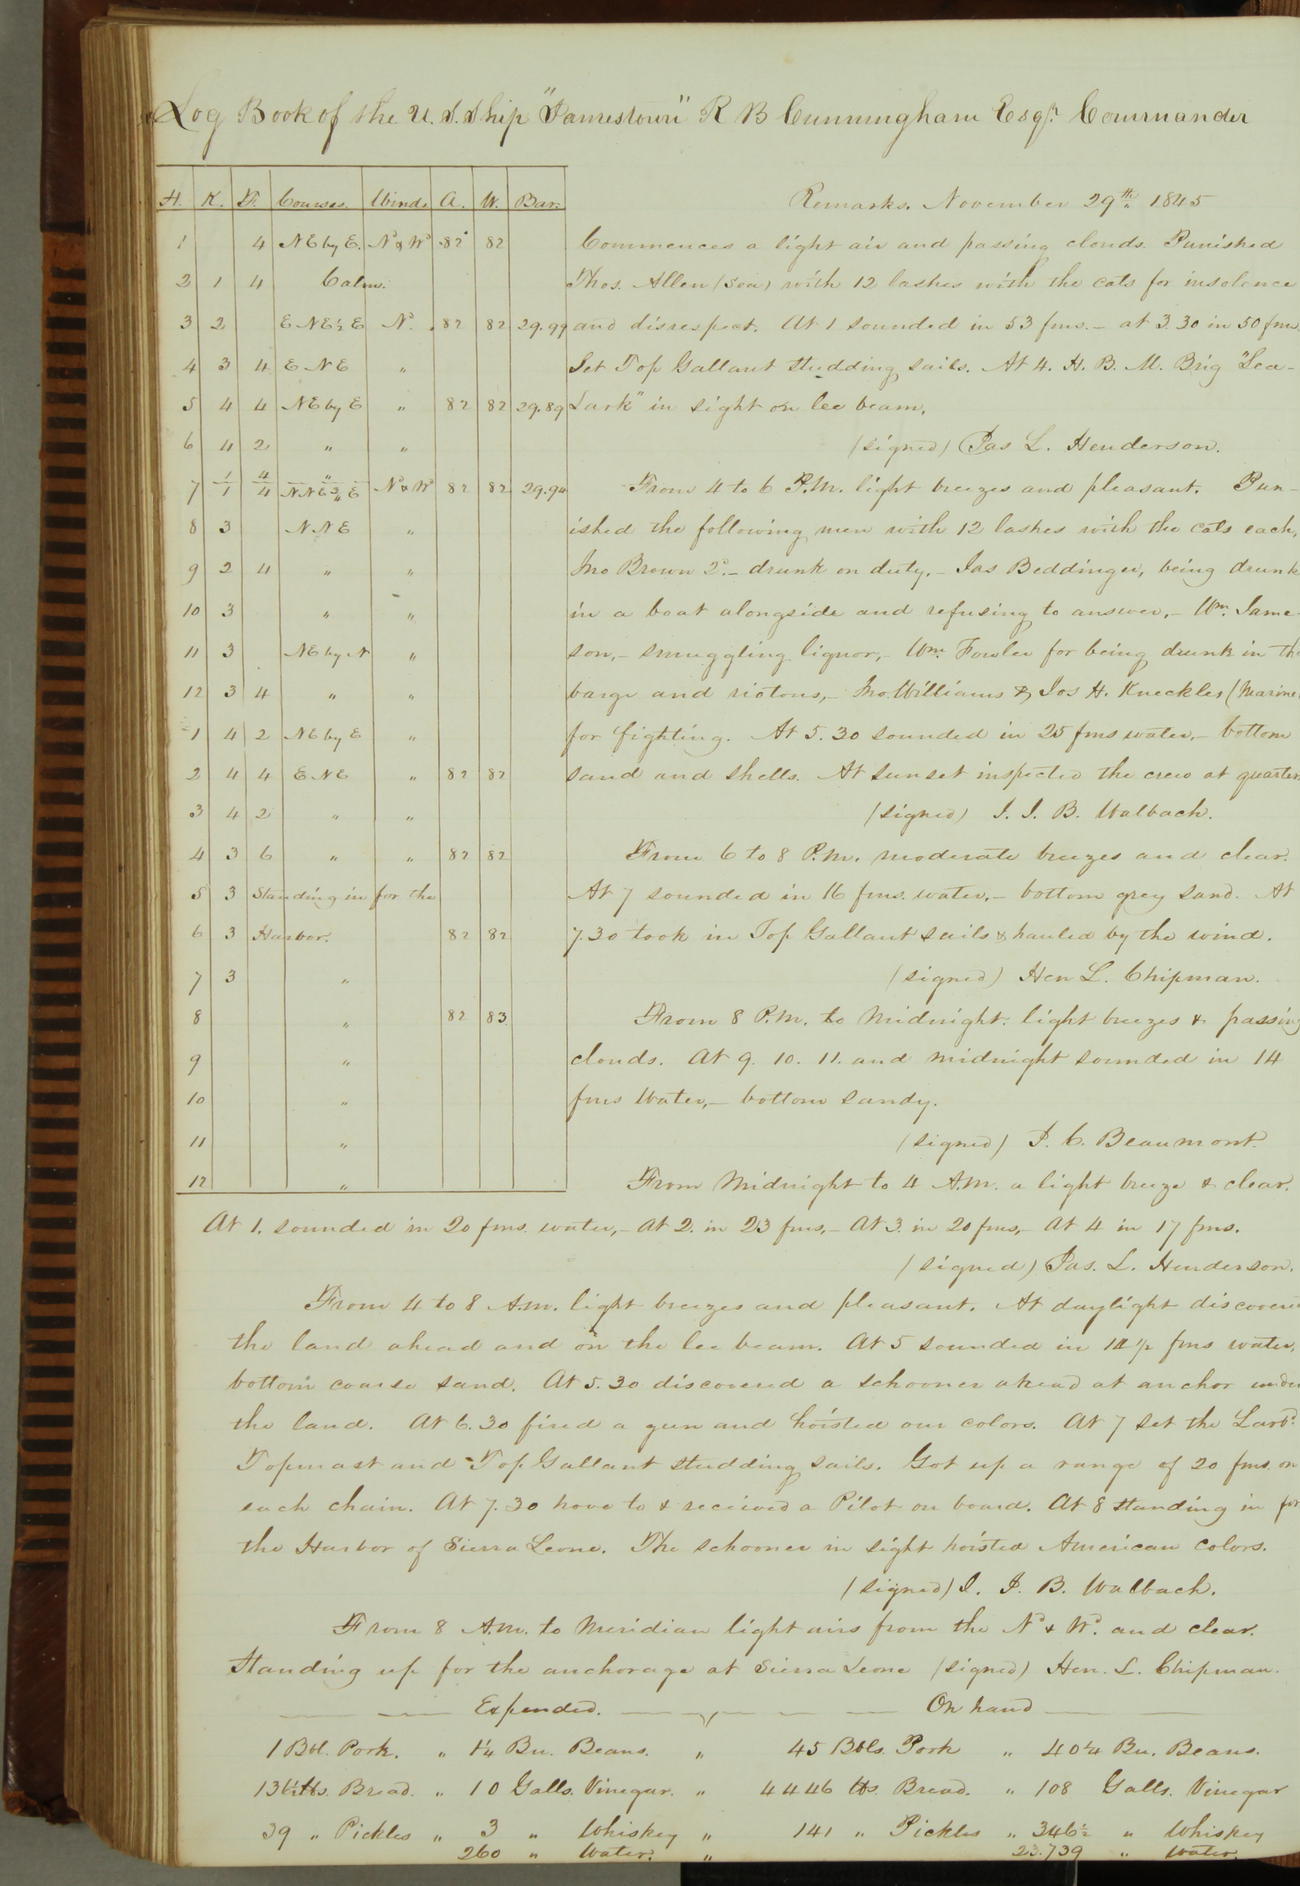 Log Book of the U. S. Ship "Jamestown" R B Cunningham Esqr. Commander
H. K. F. Courses. Winds A. W. Bar.
Remarks. November 29th 1845
1 4 NE by E. Nd & Wd 82 82
Commences a light air and passing clouds. Punished
2 1 4 Calm.
Thos. Allen (Sea) with 12 lashes with the cats for insolence
3 2 ENE½E Nd. 82 82 29.99
and disrespect. At 1 sounded in 53 fms. – at 3.30 in 50 fms.
4 3 4 ENE "
Set Top Gallant studding sails. At 4. H. B. M. Brig "Sea-
5 4 4 NE by E " 82 82 29.89
Lark" in sight on lee beam.
6 4 2 " "
(signed) Jas L. Henderson.
7 1/1 4/4 " NNE¾E Nd & Wd 82 82 29.94
From 4 to 6 P.M. light breezes and pleasant. Pun-
8 3 NNE "
ished the following men with 12 lashes with the cats each,
9 2 4 " "
Jno Brown 2d. – drunk on duty, – Jas Beddinger, being drunk
10 3 " "
in a boat alongside and refusing to answer, – Wm. Jame-
11 3 NE by N "
son, – smuggling liquor, – Wm. Fowler for being drunk in the
12 3 4 " "
barge and riotous, – Jno. Williams & Jos H. Kneckles (Marine)
1 4 2 NE by E "
for fighting. At 5.30 sounded in 25 fms water, – bottom
2 4 4 ENE " 82 82
sand and shells. At sunset inspected the crew at quarters
3 4 2 " "
(signed) J. J. B. Walbach.
4 3 6 " " 82 82
From 6 to 8 P.M. moderate breezes and clear.
5 3 Standing in for the
At 7 sounded in 16 fms. water, – bottom grey sand. At
6 3 Harbor. 82 82
7.30 took in Top Gallant sails & hauled by the wind.
7 3 "
(signed) Hen L. Chipman.
8 " 82 83
From 8 P.M. to Midnight. light breezes & passing
9 "
clouds. At 9. 10. 11. and midnight sounded in 14
10 "
fms Water, – bottom sandy.
11 "
(signed) J. C. Beaumont.
12 "
From Midnight to 4 A.M. a light breeze & clear.
At 1. sounded in 20 fms. water, – at 2. in 23 fms, – At 3. in 20 fms, – At 4 in 17 fms.
(signed) Jas. L. Henderson.
From 4 to 8 A.M. light breezes and pleasant. At daylight discovered
the land ahead and on the lee beam. At 5 sounded in 14½ fms water,
bottom coarse sand. At 5.30 discovered a schooner ahead at anchor under
the land. At 6.30 fired a gun and hoisted our colors. At 7 set the Larbd.
Topmast and Top Gallant studding sails. Got up a range of 20 fms. on
each chain. At 7.30 hove to & received a Pilot on board. At 8 standing in for
the Harbor of Sierra Leone. The schooner in sight hoisted American colors.
(signed) J. J. B. Walbach.
From 8 A.M. to Meridian light airs from the Nd & Wd. and clear.
Standing up for the anchorage at Sierra Leone (signed) Hen. L. Chipman.
Expended. On hand
1 Bbl. Pork. " 1¼ Bu. Beans. " 45 Bbls. Pork " 40¼ Bu. Beans.
136½ lbs. Bread. " 10 Galls. Vinegar. " 4446 lbs. Bread. " 108 Galls. Vinegar
39 " Pickles " 3 " Whiskey " 141 " Pickles " 346½ " Whiskey
260 " Water. " 23.739 " Water.